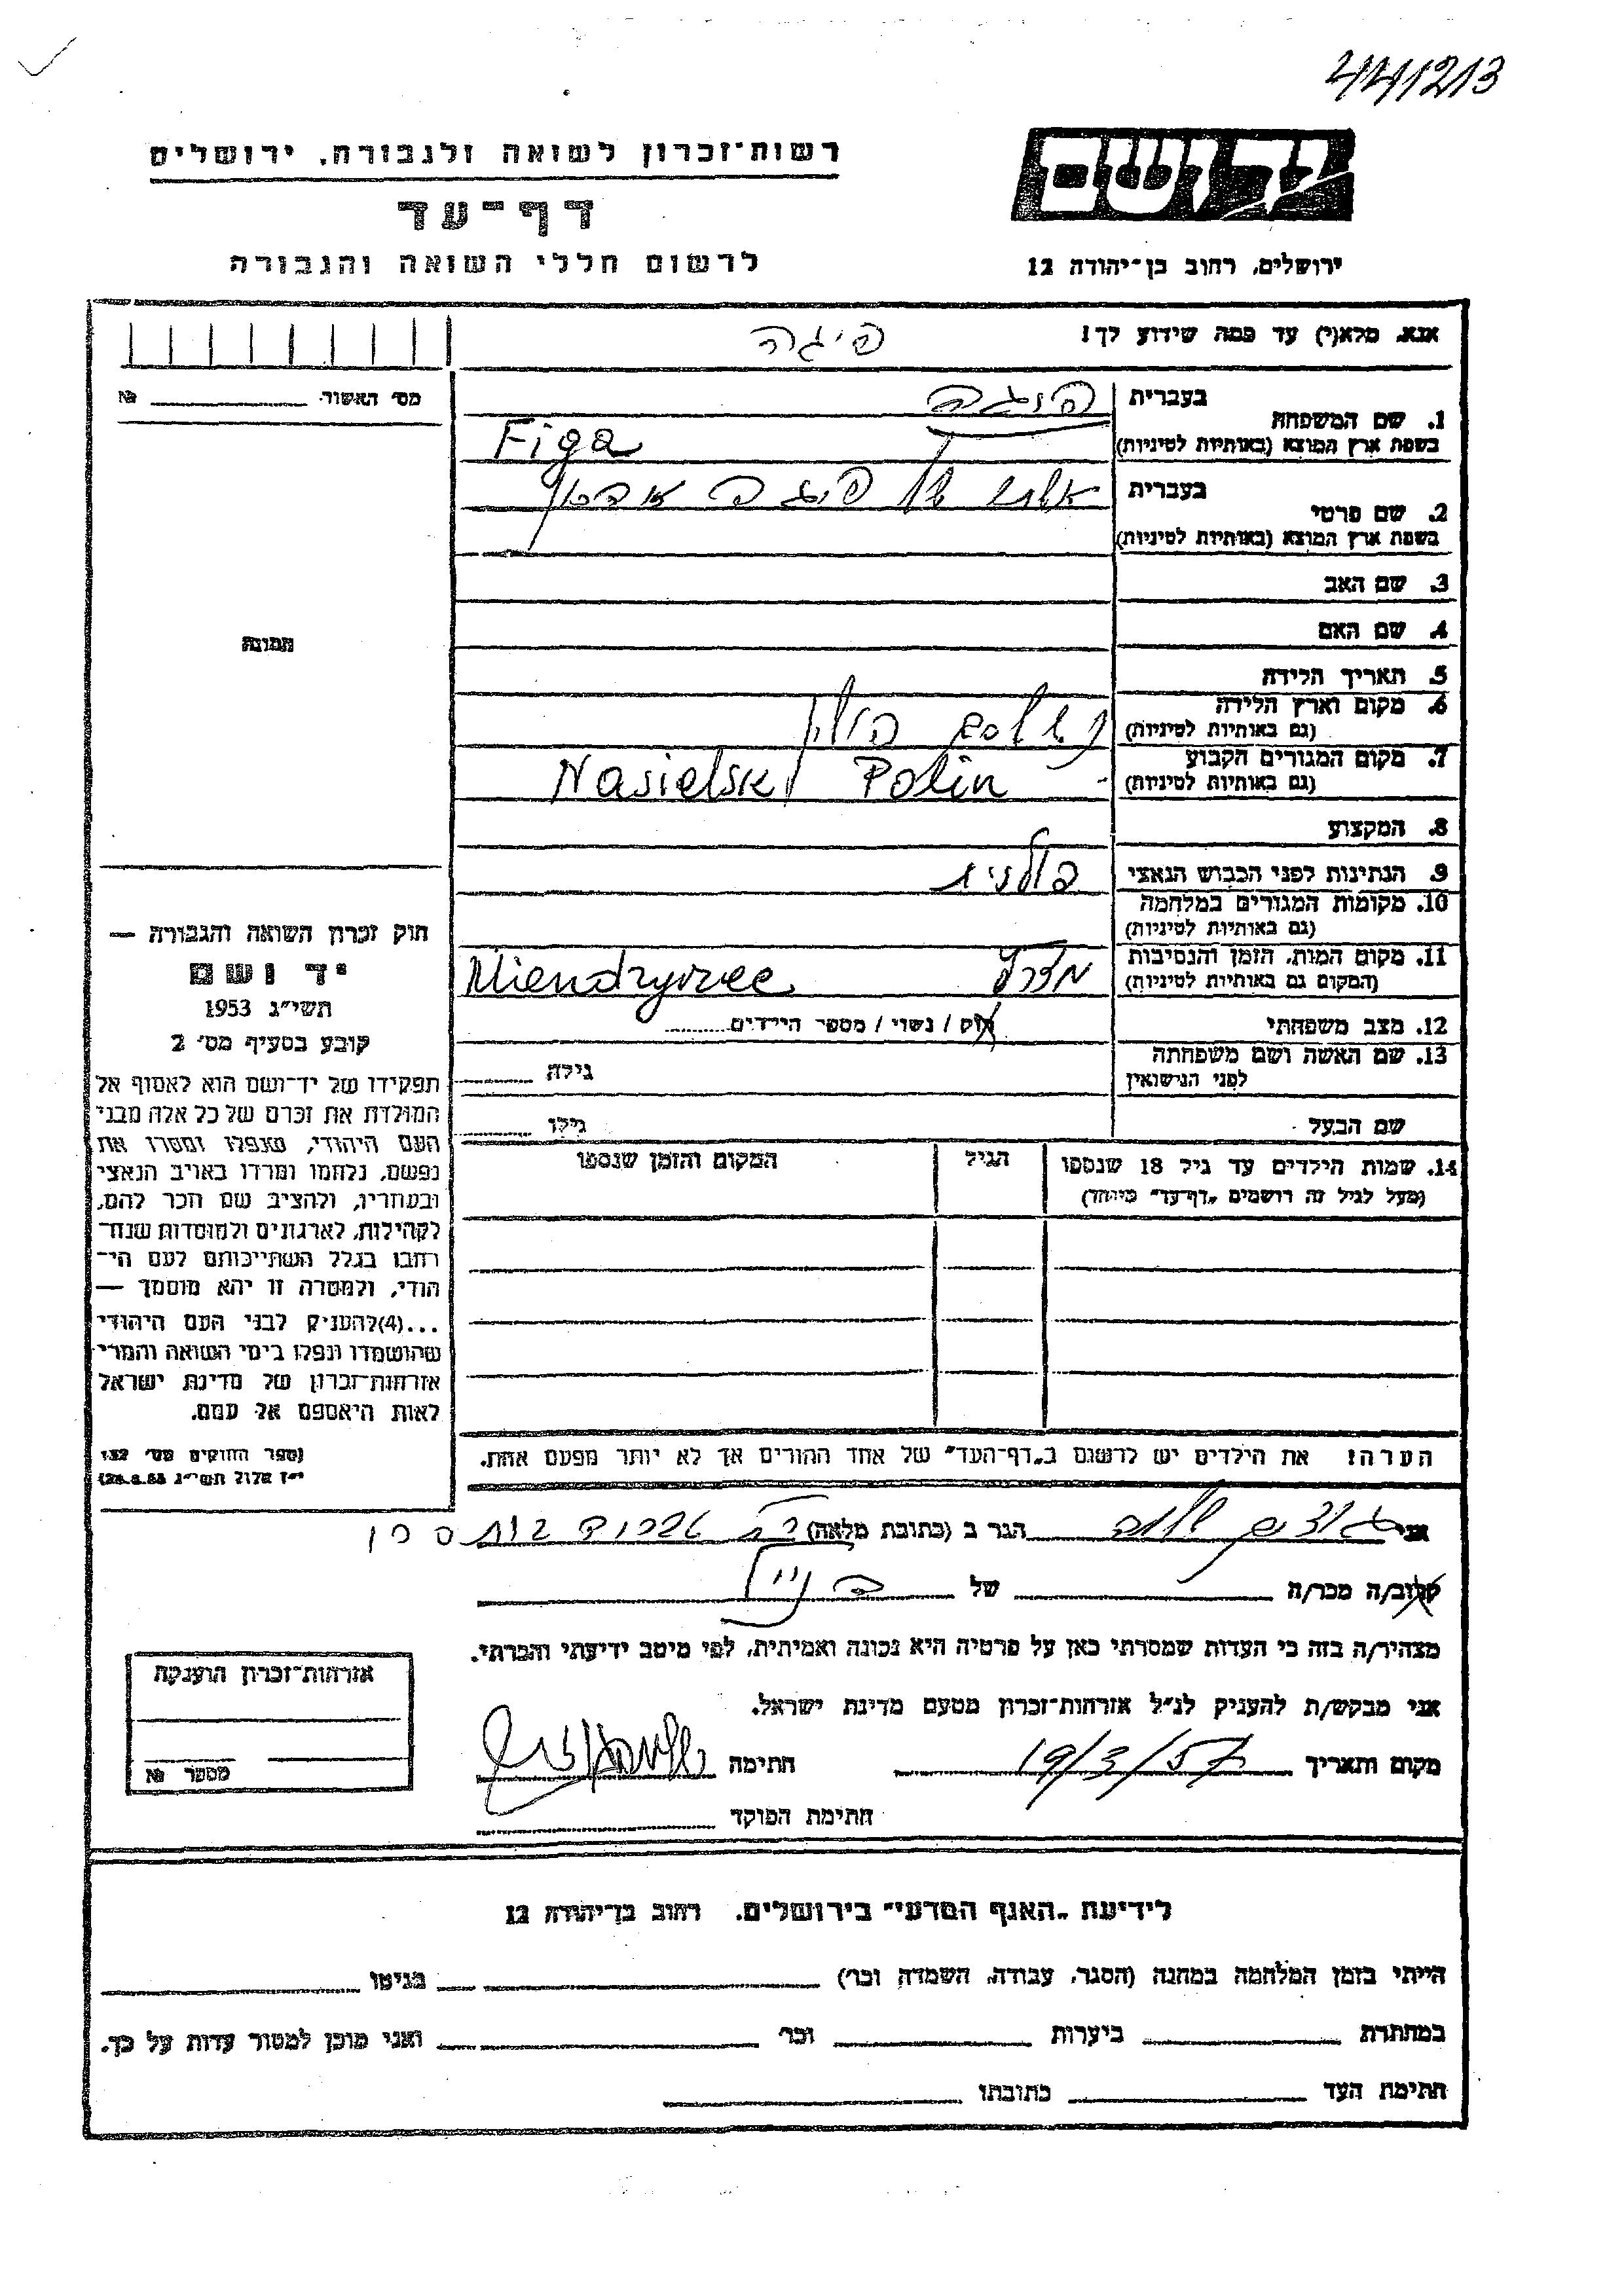 441213
רשות־זכרון לשואה ולגבורה, ירושלים
דף־עד
לרשום חללי השואה והגבורה
יד ושם
ירושלים, רחוב בן־יהודה 12
אנא, מלא(י) עד כמה שידוע לך!
פיגה
מס׳ האשור №
1. שם המשפחה
בעברית
פיגה
בשפת ארץ המוצא (באותיות לטיניות)
Figa
2. שם פרטי
בעברית
בשפת ארץ המוצא (באותיות לטיניות)
3. שם האב
4. שם האם
5. תאריך הלידה
6. מקום וארץ הלידה
(גם באותיות לטיניות)
פולין
7. מקום המגורים הקבוע
(גם באותיות לטיניות)
Nasielsk Polin
8. המקצוע
9. הנתינות לפני הכבוש הנאצי
פולנית
10. מקומות המגורים במלחמה
(גם באותיות לטיניות)
11. מקום המות, הזמן והנסיבות
(המקום גם באותיות לטיניות)
Miendzyrzec
12. מצב משפחתי
רווק / נשוי / מספר הילדים
13. שם האשה ושם משפחתה
לפני הנישואין
גילה
שם הבעל
גילו
14. שמות הילדים עד גיל 18 שנספו
(מעל לגיל זה רושמים „דף־עד" מיוחד)
הגיל
המקום והזמן שנספו
הערה: את הילדים יש לרשום ב„דף־העד" של אחד ההורים אך לא יותר מפעם אחת.
תמונה
חוק זכרון השואה והגבורה —
יד ושם
תשי״ג 1953
קובע בסעיף מס׳ 2
תפקידו של יד־ושם הוא לאסוף אל
המולדת את זכרם של כל אלה מבני
העם היהודי, שנפלו ומסרו את
נפשם, נלחמו ומרדו באויב הנאצי
ובעוזריו, ולהציב שם וזכר להם,
לקהילות, לארגונים ולמוסדות שנח־
רחבו בגלל השתייכותם לעם הי־
הודי, ולמטרה זו יהא מוסמך —
...(4) להעניק לבני העם היהודי
שהושמדו ונפלו בימי השואה והמרי
אזרחות־זכרון של מדינת ישראל
לאות היאספם אל עמם.
(ספר החוקים מס׳ 132
י״ז אלול תשי״ג 28.8.53)
אני הגר ב (כתובת מלאה)
קרוב/ה מכר/ה של
מצהיר/ה בזה כי העדות שמסרתי כאן על פרטיה היא נכונה ואמיתית, לפי מיטב ידיעתי והכרתי.
אני מבקש/ת להעניק לנ״ל אזרחות־זכרון מטעם מדינת ישראל.
מקום ותאריך 19/3/57 חתימה
חתימת הפוקד
אזרחות־זכרון הוענקה
מספר №
לידיעת „האגף המדעי" בירושלים, רחוב בן־יהודה 12
הייתי בזמן המלחמה במחנה (הסגר, עבודה, השמדה וכו׳) בגיטו
במחתרת ביערות וכו׳ ואני מוכן למסור עדות על כך.
חתימת העד כתובתו